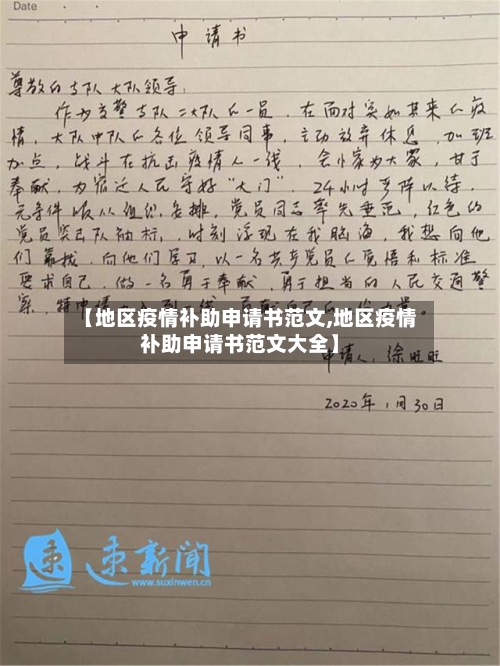 Date
申请书
尊敬的支队大队领导:
作为交警支队二大队的一员,在面对突如其来的疫
情,大队中队的各位领导同事,主动放弃休息,加班
加点,战斗在抗击疫情人一线,舍小家为大家,甘于
奉献,为宿迁人民守好“大门”,24小时严阵以待,
无条件服从组织安排,党员同志率先垂范,红色的
党员突击队袖标,时刻浮现在我脑海,我想向他
们靠拢,向他们学习,以一名共产党员的觉悟和标准
要求自己,做一名勇于奉献,勇于担当的人民交通警
察,特申请
【地区疫情补助申请书范文,地区疫情
补助申请书范文大全】
申请人:徐旺旺
2020年1月30日
速新闻
www.suxinwen.cn